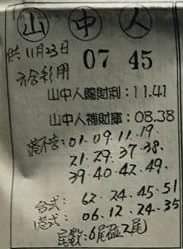 山中人
11月23日 07 45
合彩用
山中人賜財刹：11.41
山中人補財庫：08.38
01.09.11.19.
21.29.37.38.
39.40.42.49.
合式：62.24.45.51
06.12.24.35
尾數：6尾 2尾